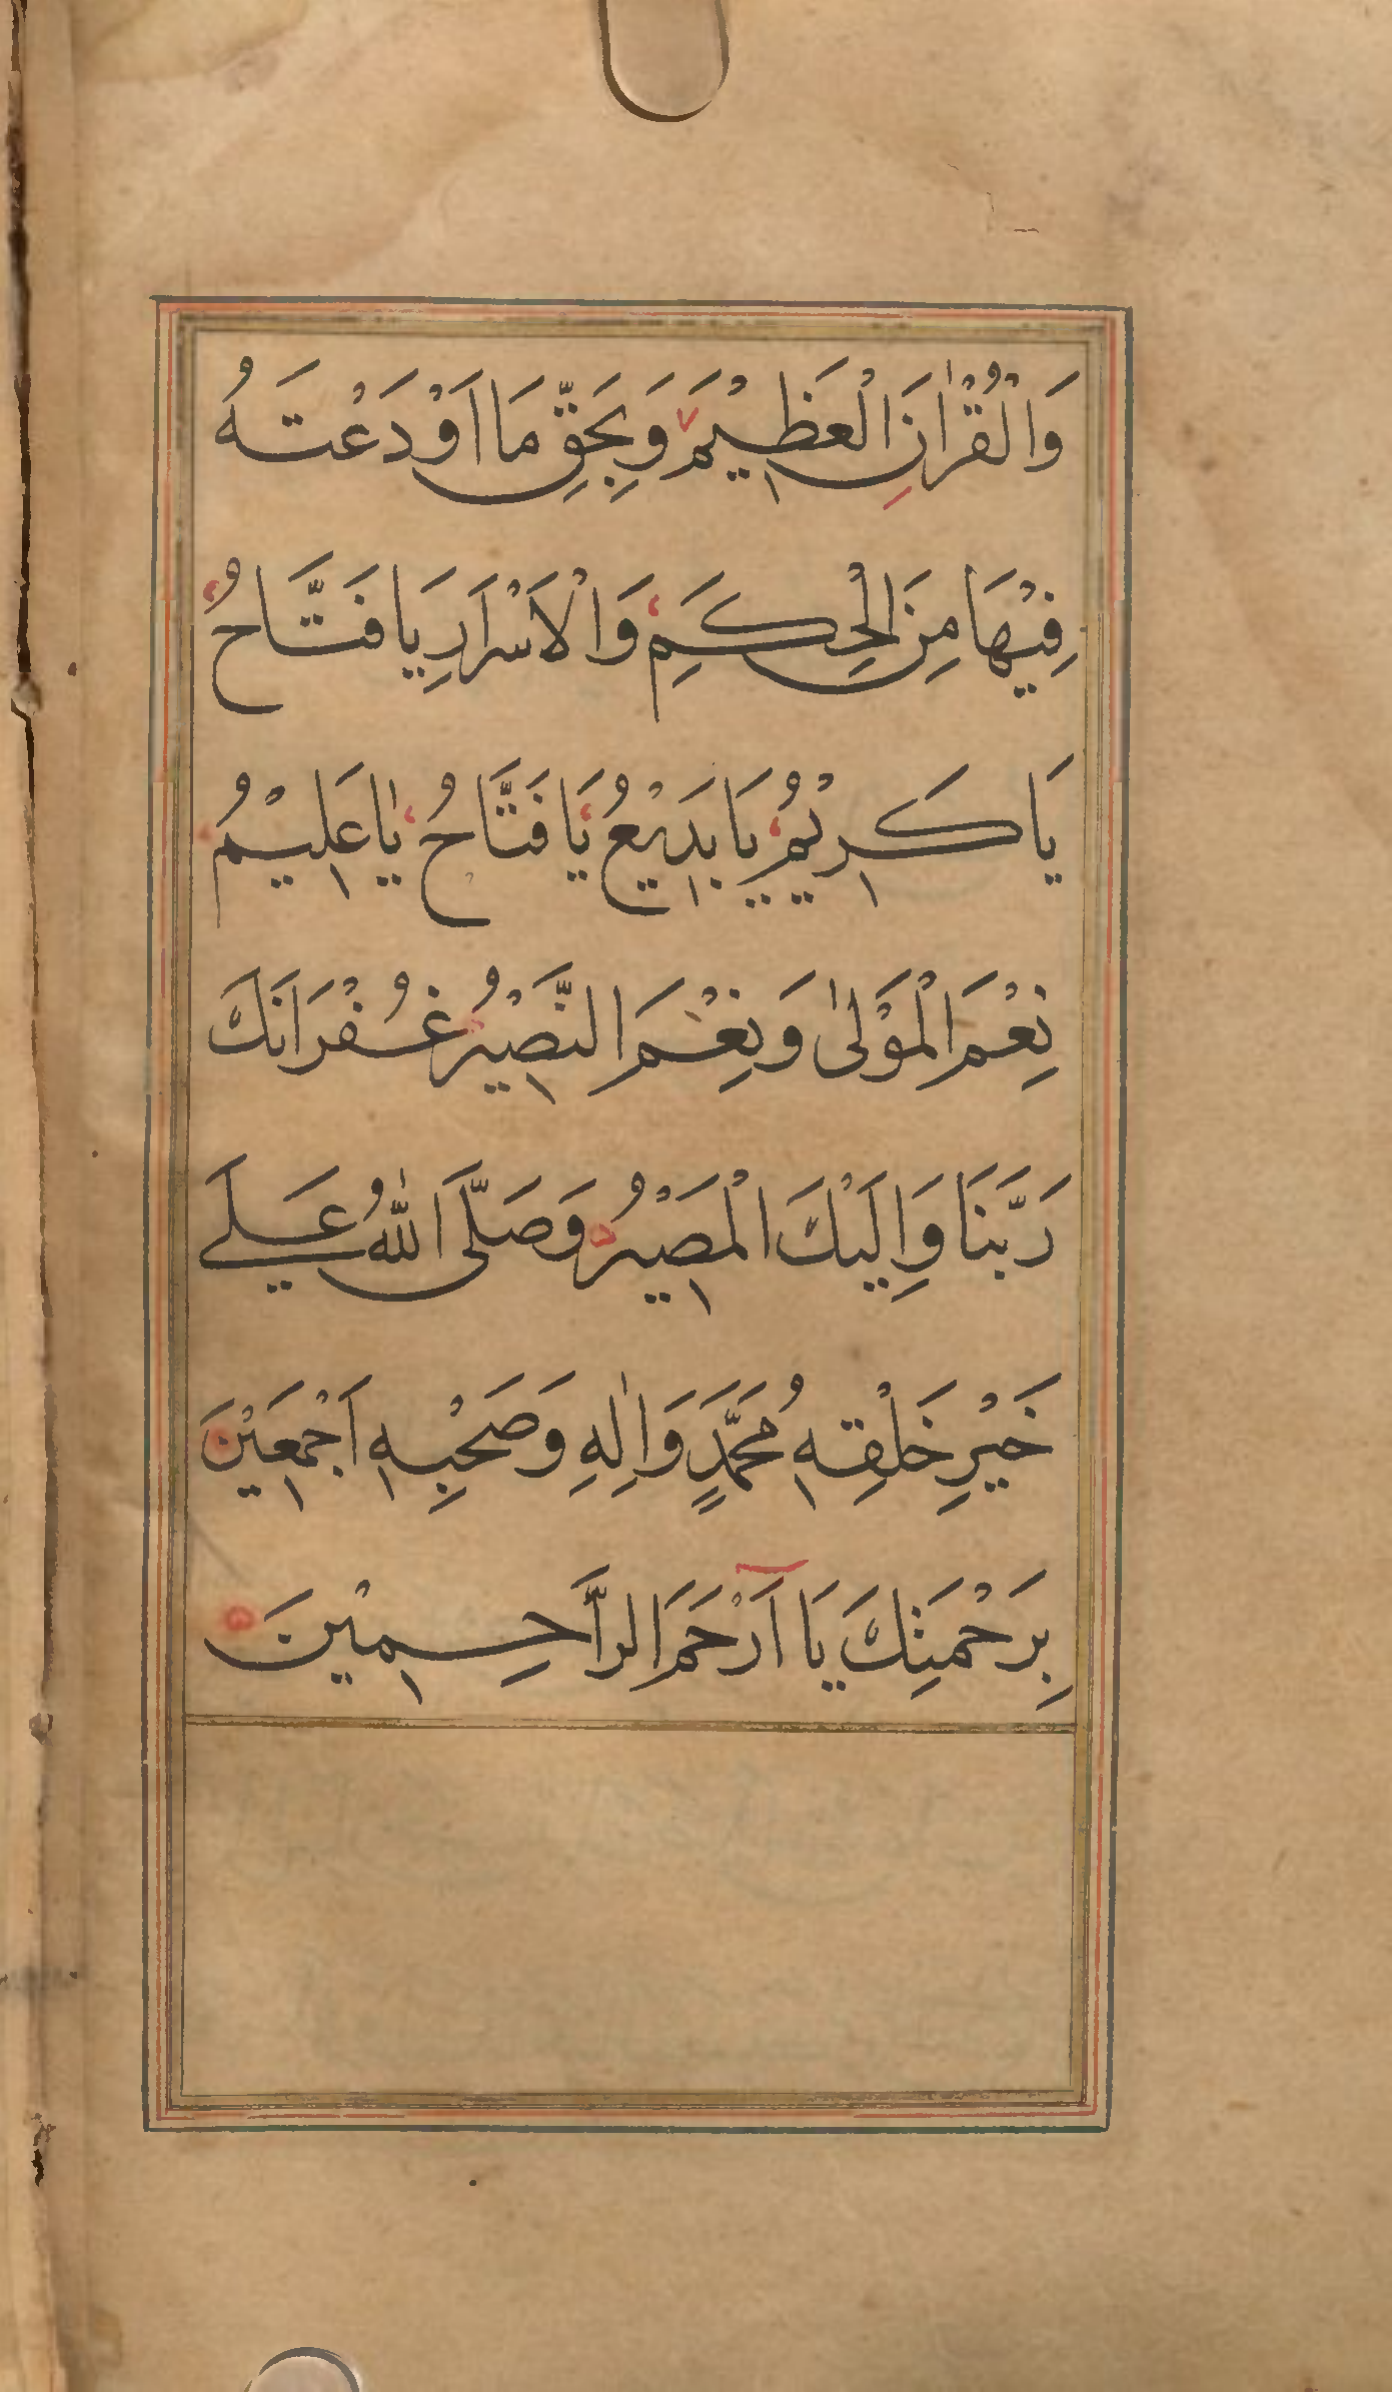 وَالْقُرْاٰنَِ الْعَظٖيْمَِ وَبِحَقِّ مَا اَوْدَعْتَهُ
فِيْهَا مِنَ الْحِكَمِ وَالْاَسْرَارِ يَا فَتَّاحُ
يَا كَرٖيْمُ يَا بَدٖيْعُ يَا فَتَّاحُ يَا عَلٖيْمُ
نِعْمَ الْمَوْلٰى وَنِعْمَ النَّصٖيْرُ غُفْرَانَكَ
رَبَّنَا وَاِلَيْكَ الْمَصٖيْرُ وَصَلَّى اللّٰهُ عَلَي
خَيْرِ خَلْقِهٖ مُحَمَّدٍ وَاٰلِهِ وَصَحْبِهٖ اَجْمَعٖيْنَ
بِرَحْمَتِكَ يَا اَرْحَمَ الرَّاحِمٖيْنَ